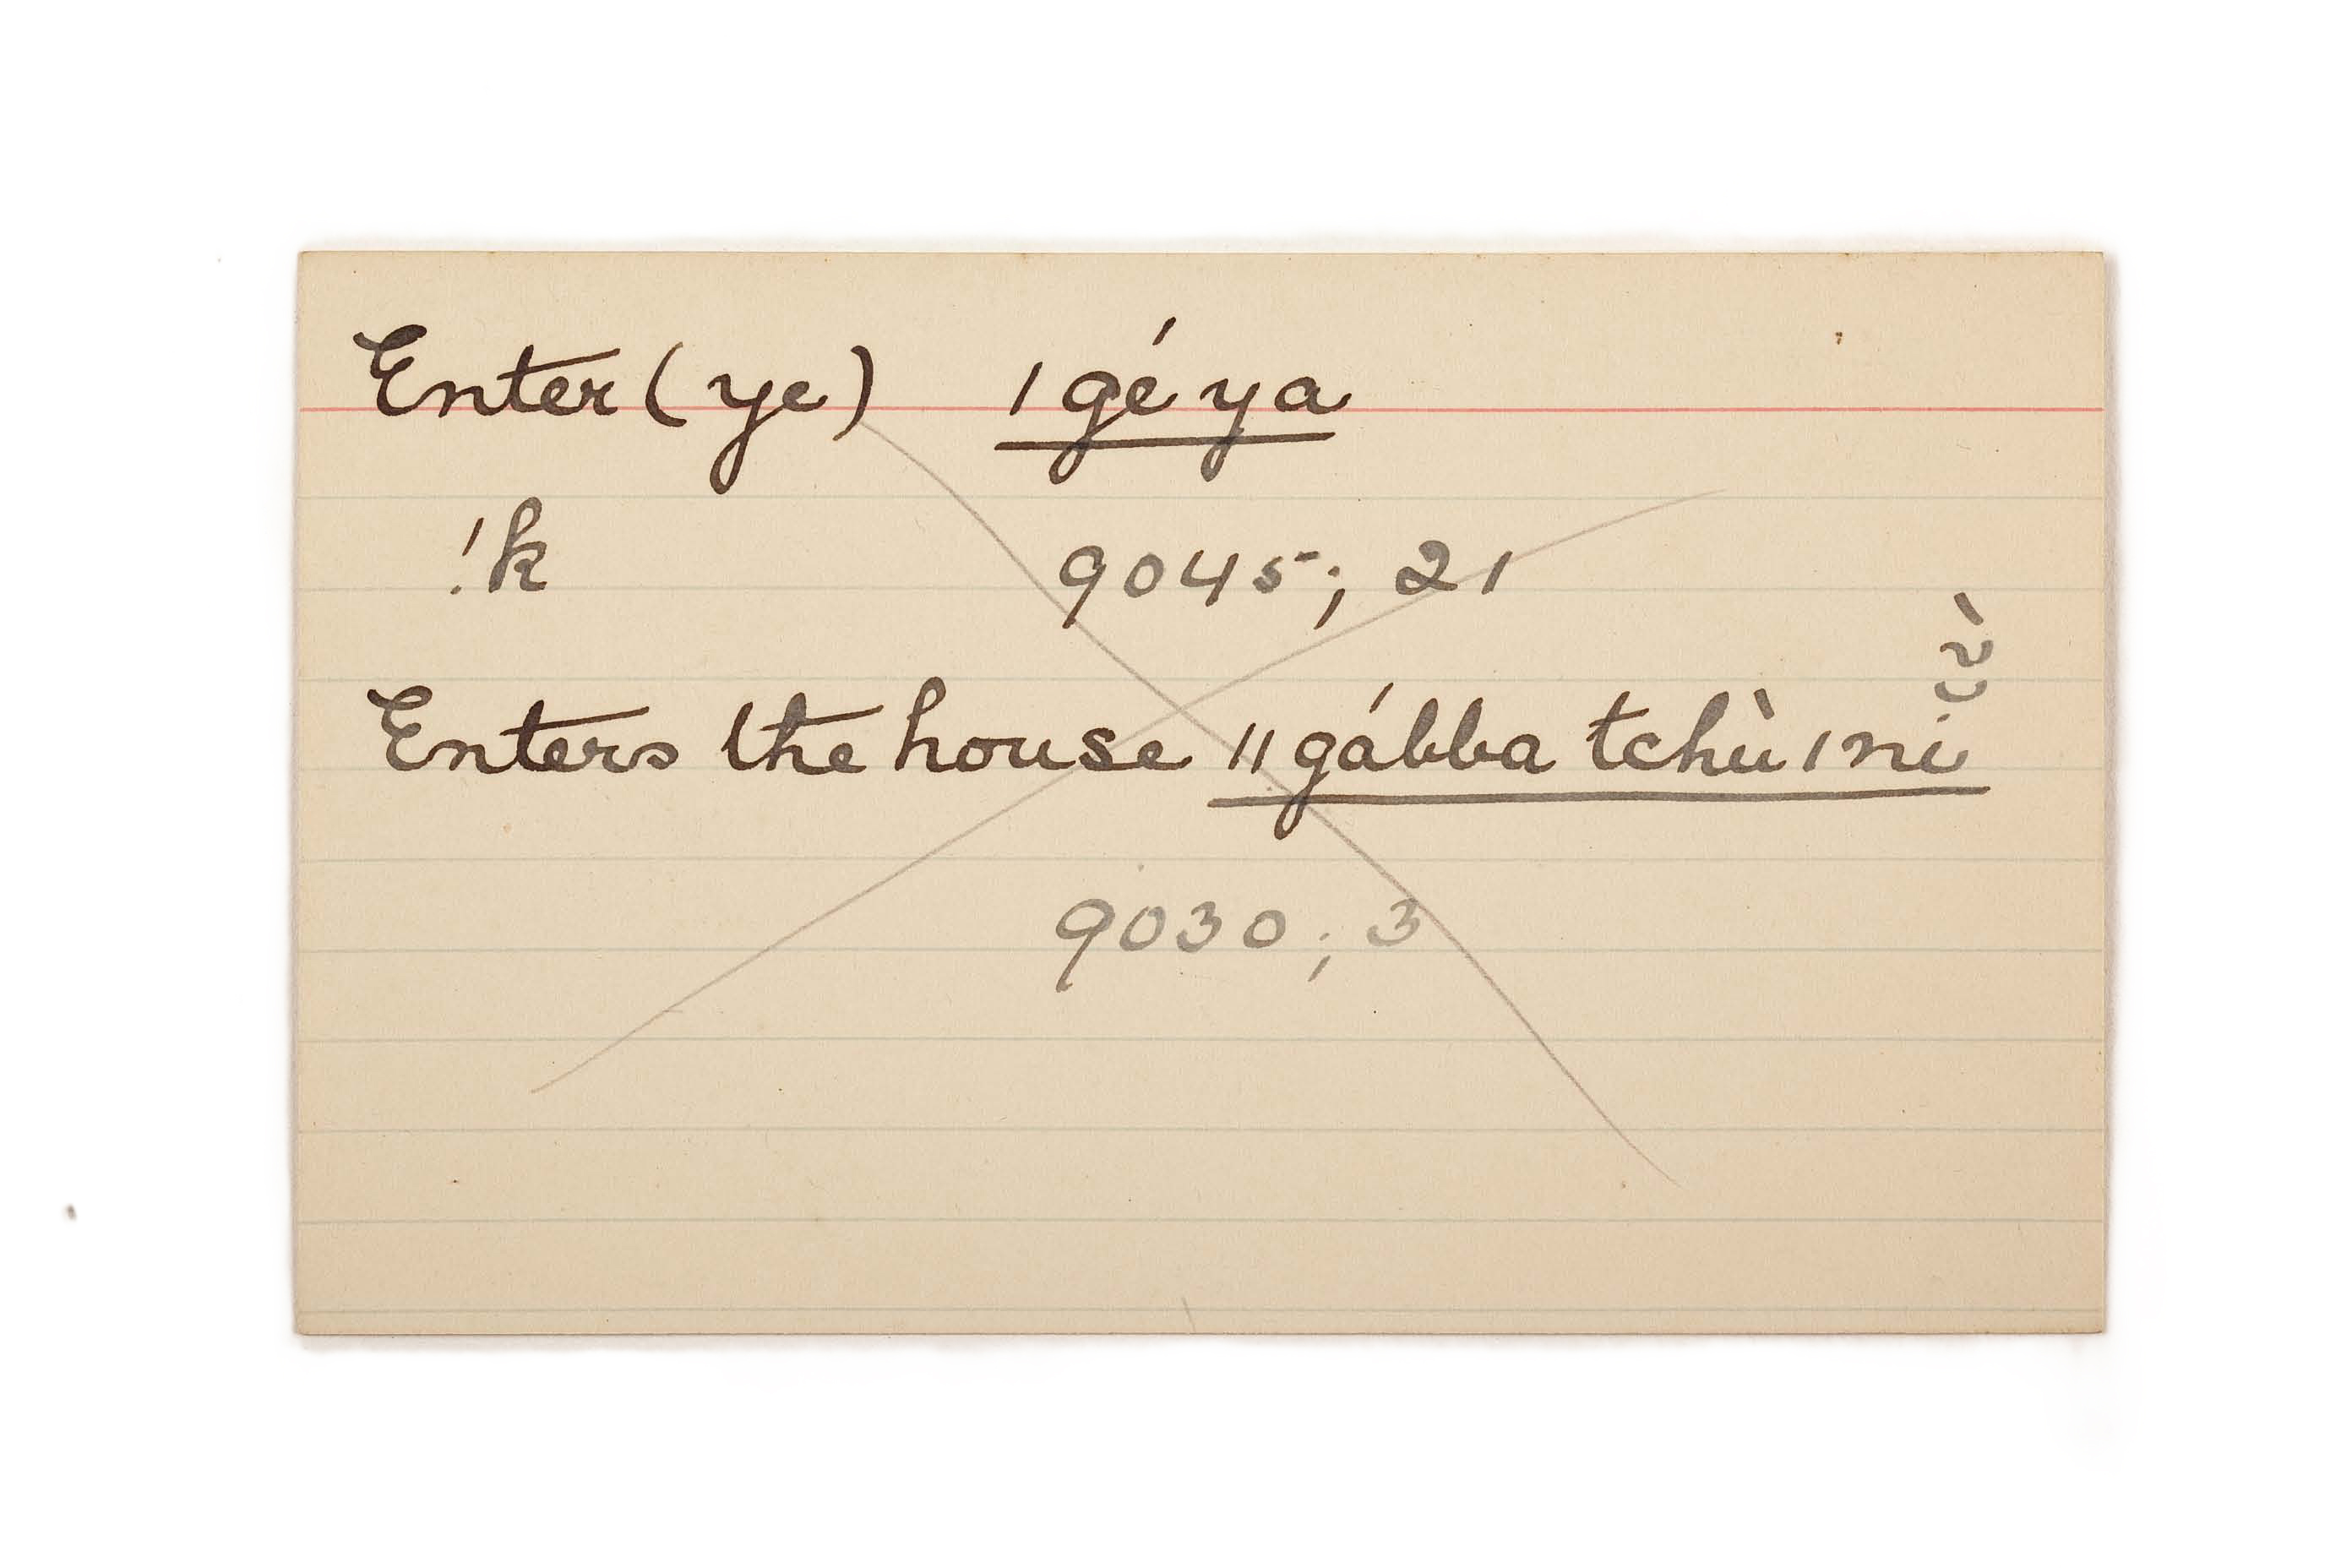 Enter (ye) ǀgéya
!k 9045; 21
Enters the house ǁgábba tchù ǀnĭ̃̀
9030; 3